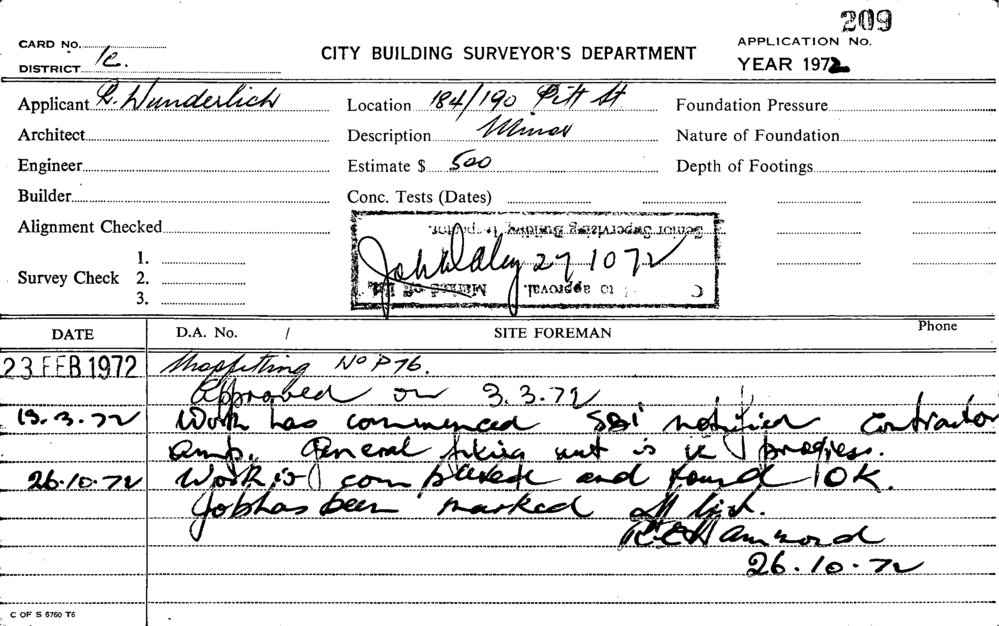 209
CARD No. APPLICATION No.
DISTRICT 1c. CITY BUILDING SURVEYOR'S DEPARTMENT YEAR 1972
Applicant R. Wunderlich Location 184/190 Pitt St Foundation Pressure
Architect Description Minor Nature of Foundation
Engineer Estimate $ 500 Depth of Footings
Builder Conc. Tests (Dates)
Alignment Checked Senior Supervising Building Inspector.
1.
Survey Check 2. John Daley 27 10 72
3. Marked off to approval.
DATE D.A. No. / SITE FOREMAN Phone
23 FEB 1972 Shopfitting No P76.
Approved on 3.3.72
13.3.72 Work has commenced SBI notified Contractor
General fixing out is in progress.
26.10.72 Work is completed and found OK.
Job has been marked off list.
Hammond
26.10.72
C OF S 6760 T6